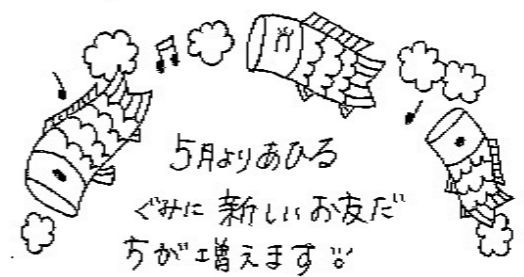 5月よりあひる
ぐみに新しいお友だ
ちが増えます